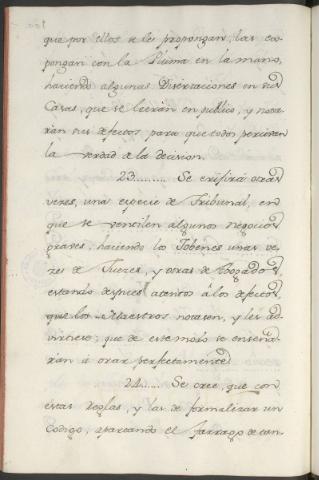 que por ellos se les propongan, las ex-
pongan con la Pluma en la mano,
haciendo algunas Disertaciones en sus
Casas, que se leerán en publico, y nota-
rán sus defectos para que todos perciven
la verdad de la decision.
23......... Se erigirá otras
veces, una especie de Tribunal, en
que se ventilen algunos negocios
graves, haciendo los Jóbenes unas ve-
zes de Juezes, y otras de Abogados,
estando despues atentos á los defectos,
que los Maestros notasen, y les ad-
virtiesen; que de este modo se enseña-
rán á orar perfectamente.
24...... Se cree, que con
estas reglas, y las de formalizar un
Codigo, apartando el farrago de tan-